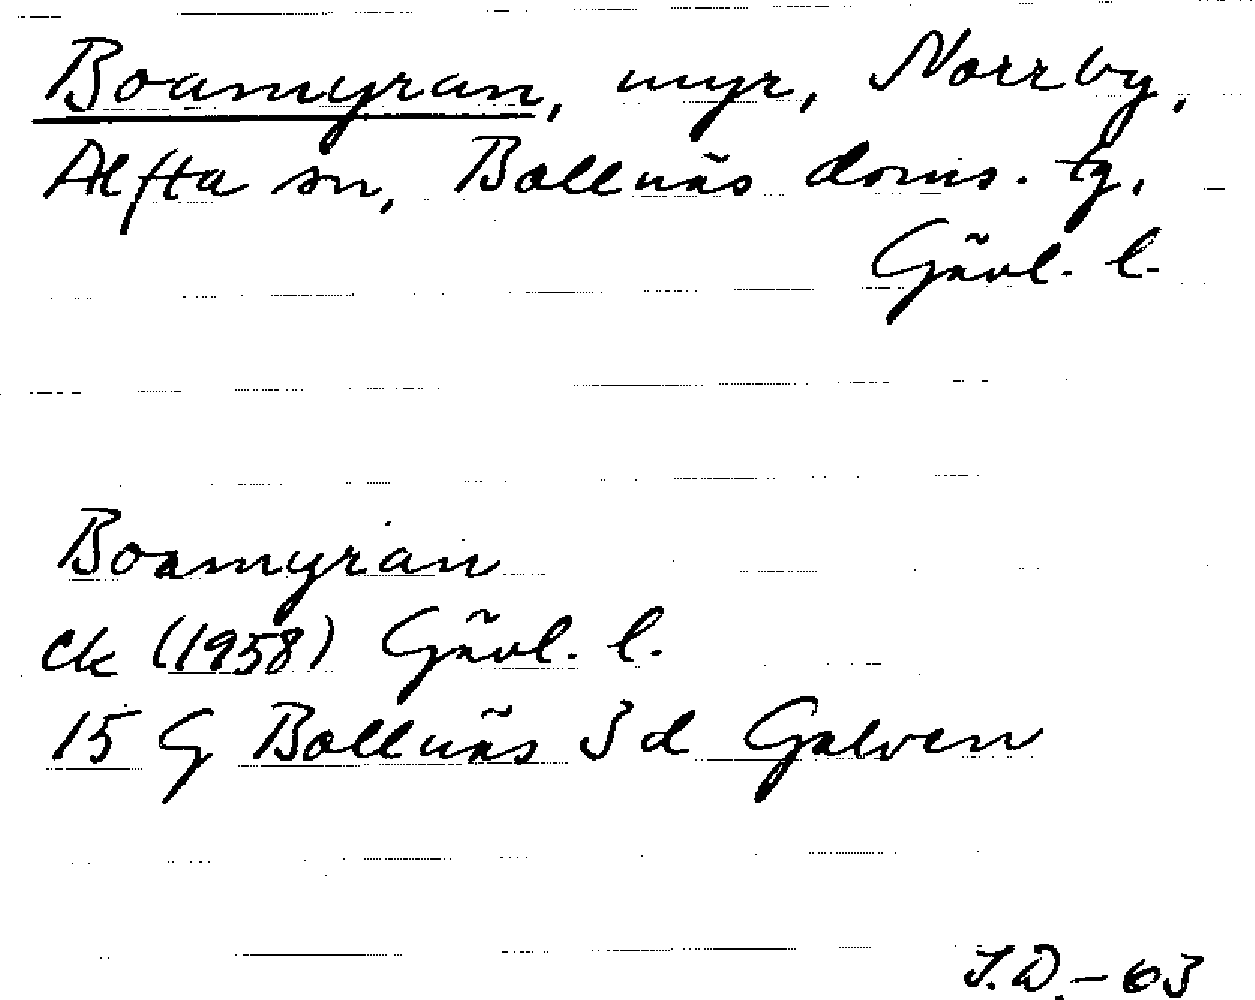 Boamyran, myr, Norrby,
Alfta sn, Bollnäs doms. tg,
Gävl. l.
Boamyran
Ek (1958) Gävl. l.
15 G Bollnäs 3 d Galven
I.D.-63